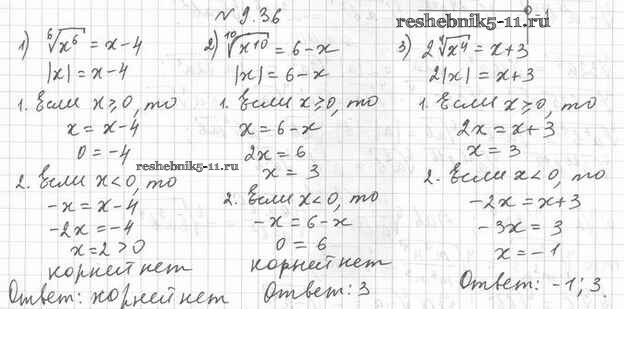 № 9.36
reshebnik5-11.ru
1) ⁶√x⁶ = x-4
|x| = x-4
1. Если x≥0, то
x = x-4
0 = -4
2. Если x<0, то
-x = x-4
-2x = -4
x=2>0
корней нет
Ответ: корней нет
2) ¹⁰√x¹⁰ = 6-x
|x| = 6-x
1. Если x≥0, то
x = 6-x
2x = 6
x = 3
reshebnik5-11.ru
2. Если x<0, то
-x = 6-x
0 = 6
корней нет
Ответ: 3
3) 2⁴√x⁴ = x+3
2|x| = x+3
1. Если x≥0, то
2x = x+3
x = 3
2. Если x<0, то
-2x = x+3
-3x = 3
x = -1
Ответ: -1; 3.